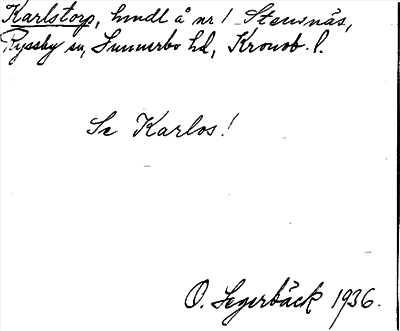 Karlstorp, hmdl å nr 1 Stensnäs,
Ryssby sn, Sunnerbo hd, Kronob. l.
Se Karlos!
O. Segerbäck 1936.